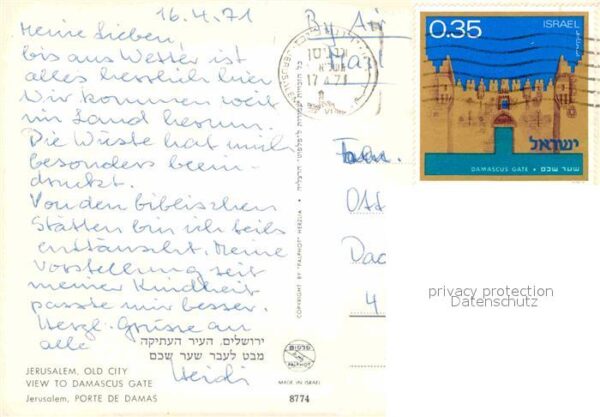 16.4.71
Meine Lieben,
bis aus Wetter ist
alles herrlich hier
Wir kommen weit
im Land herum.
Die Wüste hat mich
besonders beein-
druckt.
Von den biblischen
Stätten bin ich teils
enttäuscht. Meine
Vorstellung seit
meiner Kindheit
passte mir besser.
Herzl. Grüsse an
alle
Heidi
ירושלים, העיר העתיקה
מבט לעבר שער שכם
JERUSALEM, OLD CITY
VIEW TO DAMASCUS GATE
Jerusalem, PORTE DE DAMAS
MADE IN ISRAEL
8774
COPYRIGHT BY "PALPHOT" HERZLIA
By Air
17.4.71
Fam.
Ott
4
0.35
ISRAEL
ישראל
DAMASCUS GATE • שער שכם
privacy protection
Datenschutz